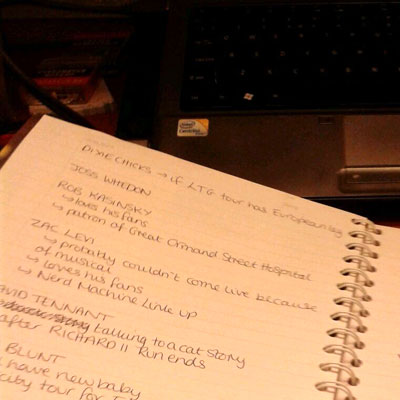 DIXIE CHICKS → if LTG tour has European leg
JOSS WHEDON
ROB KASINSKY
↳ loves his fans
↳ patron of Great Ormand Street Hospital
ZAC LEVI
↳ probably couldn't come live because
of musical
↳ loves his fans
↳ Nerd Machine link up
DAVID TENNANT
talking to a cat story
after RICHARD II run ends
BLUNT
have new baby
city tour for